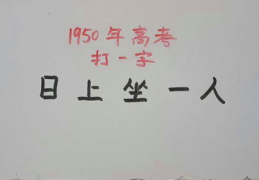 1950年高考
打一字
日上坐一人